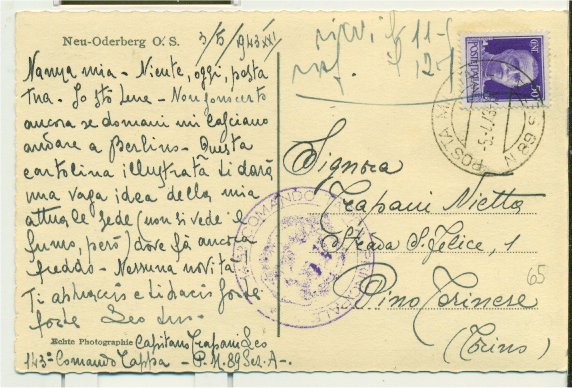 Neu-Oderberg O. S.
3/5/943 XXI
Nanya mia - Niente, oggi, posta
tua. Io stò bene - Non conosco
ancora se domani mi lasciano
andare a Berlino. Questa
cartolina illustrata ti darà
una vaga idea della mia
attuale sede (non si vede il
fumo, però) dove fà ancora
freddo - Nessuna novità
Ti abbraccio e ti bacio forte
forte Leo
Echte Photographie Capitano Trapani Leo
143° Comando Tappa - P.M. 89 Sez. A -
11-
12-
POSTA MILITARE
COMANDO
Signora
Trapani Nietta
Strada S. Felice, 1
Pino Torinese
(Torino)
65